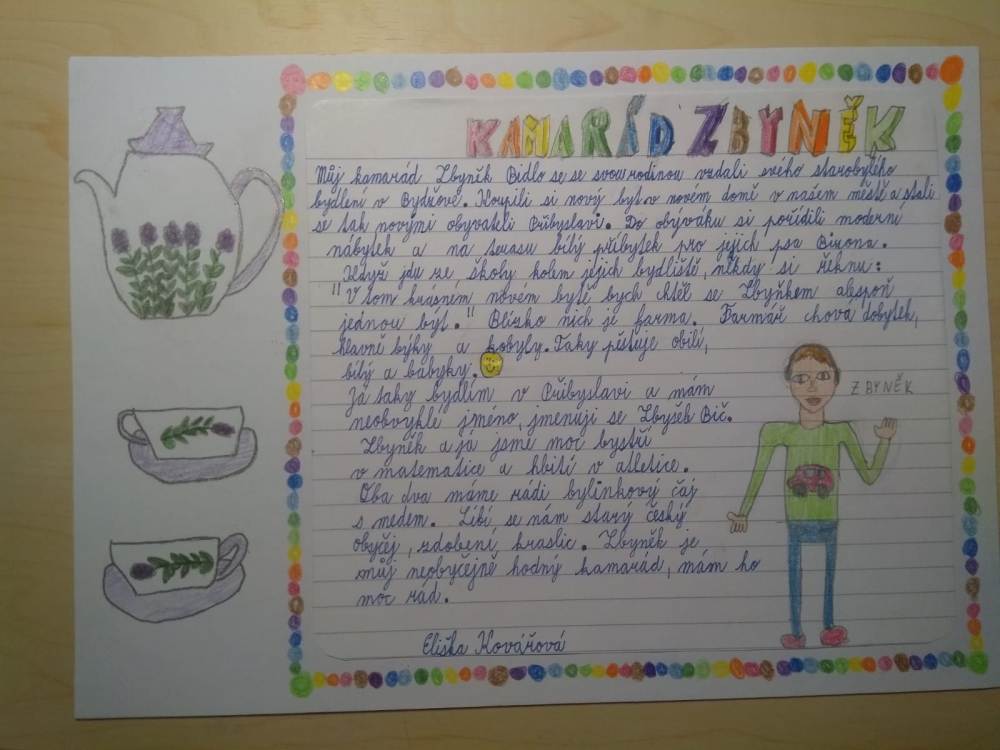 KAMARÁD ZBYNĚK
Můj kamarád Zbyněk Bidlo se se svou rodinou vzdali svého starobylého
bydlení v Bydžově. Koupili si nový byt v novém domě v našem městě a stali
se tak novými obyvateli Přibyslavi. Do obýváku si pořídili moderní
nábytek a na terasu bílý příbytek pro jejich psa Birona.
Když jdu ze školy kolem jejich bydliště, někdy si řeknu:
"V tom krásném novém bytě bych chtěl se Zbyňkem alespoň
jednou být." Blízko nich je farma. Farmář chová dobytek,
hlavně býky a kobyly. Taky pěstuje obilí,
bílý a babyky.
Já taky bydlím v Přibyslavi a mám
neobvyklé jméno, jmenuji se Zbyšek Bič.
Zbyněk a já jsme moc bystří
v matematice a hbití v atletice.
Oba dva máme rádi bylinkový čaj
s medem. Líbí se nám starý český
obyčej, zdobení kraslic. Zbyněk je
můj neobyčejně hodný kamarád, mám ho
moc rád.
Eliška Kovářová
ZBYNĚK